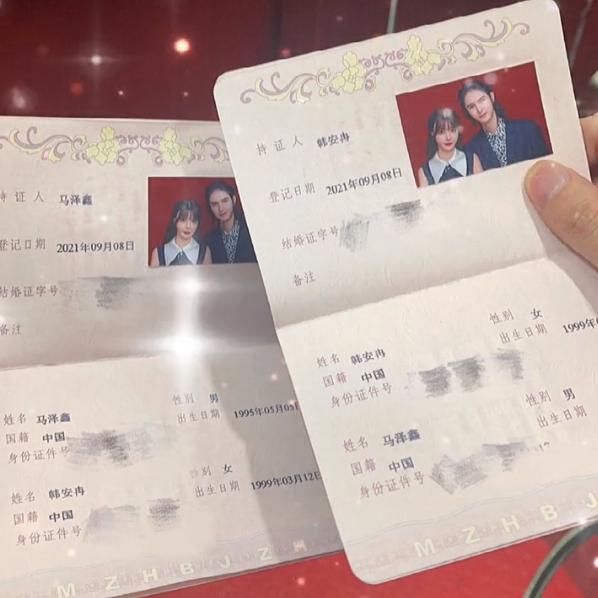 持证人 马泽鑫
登记日期 2021年09月08日
结婚证字号
备注
姓名 马泽鑫 性别 男
国籍 中国 出生日期 1995年05月05日
身份证件号
姓名 韩安冉 性别 女
国籍 中国 出生日期 1999年03月12日
身份证件号
MZHBJZ
持证人 韩安冉
登记日期 2021年09月08日
结婚证字号
备注
姓名 韩安冉 性别 女
国籍 中国 出生日期 1999年
身份证件号
姓名 马泽鑫 性别 男
国籍 中国 出生日期
身份证件号
MZHBJ